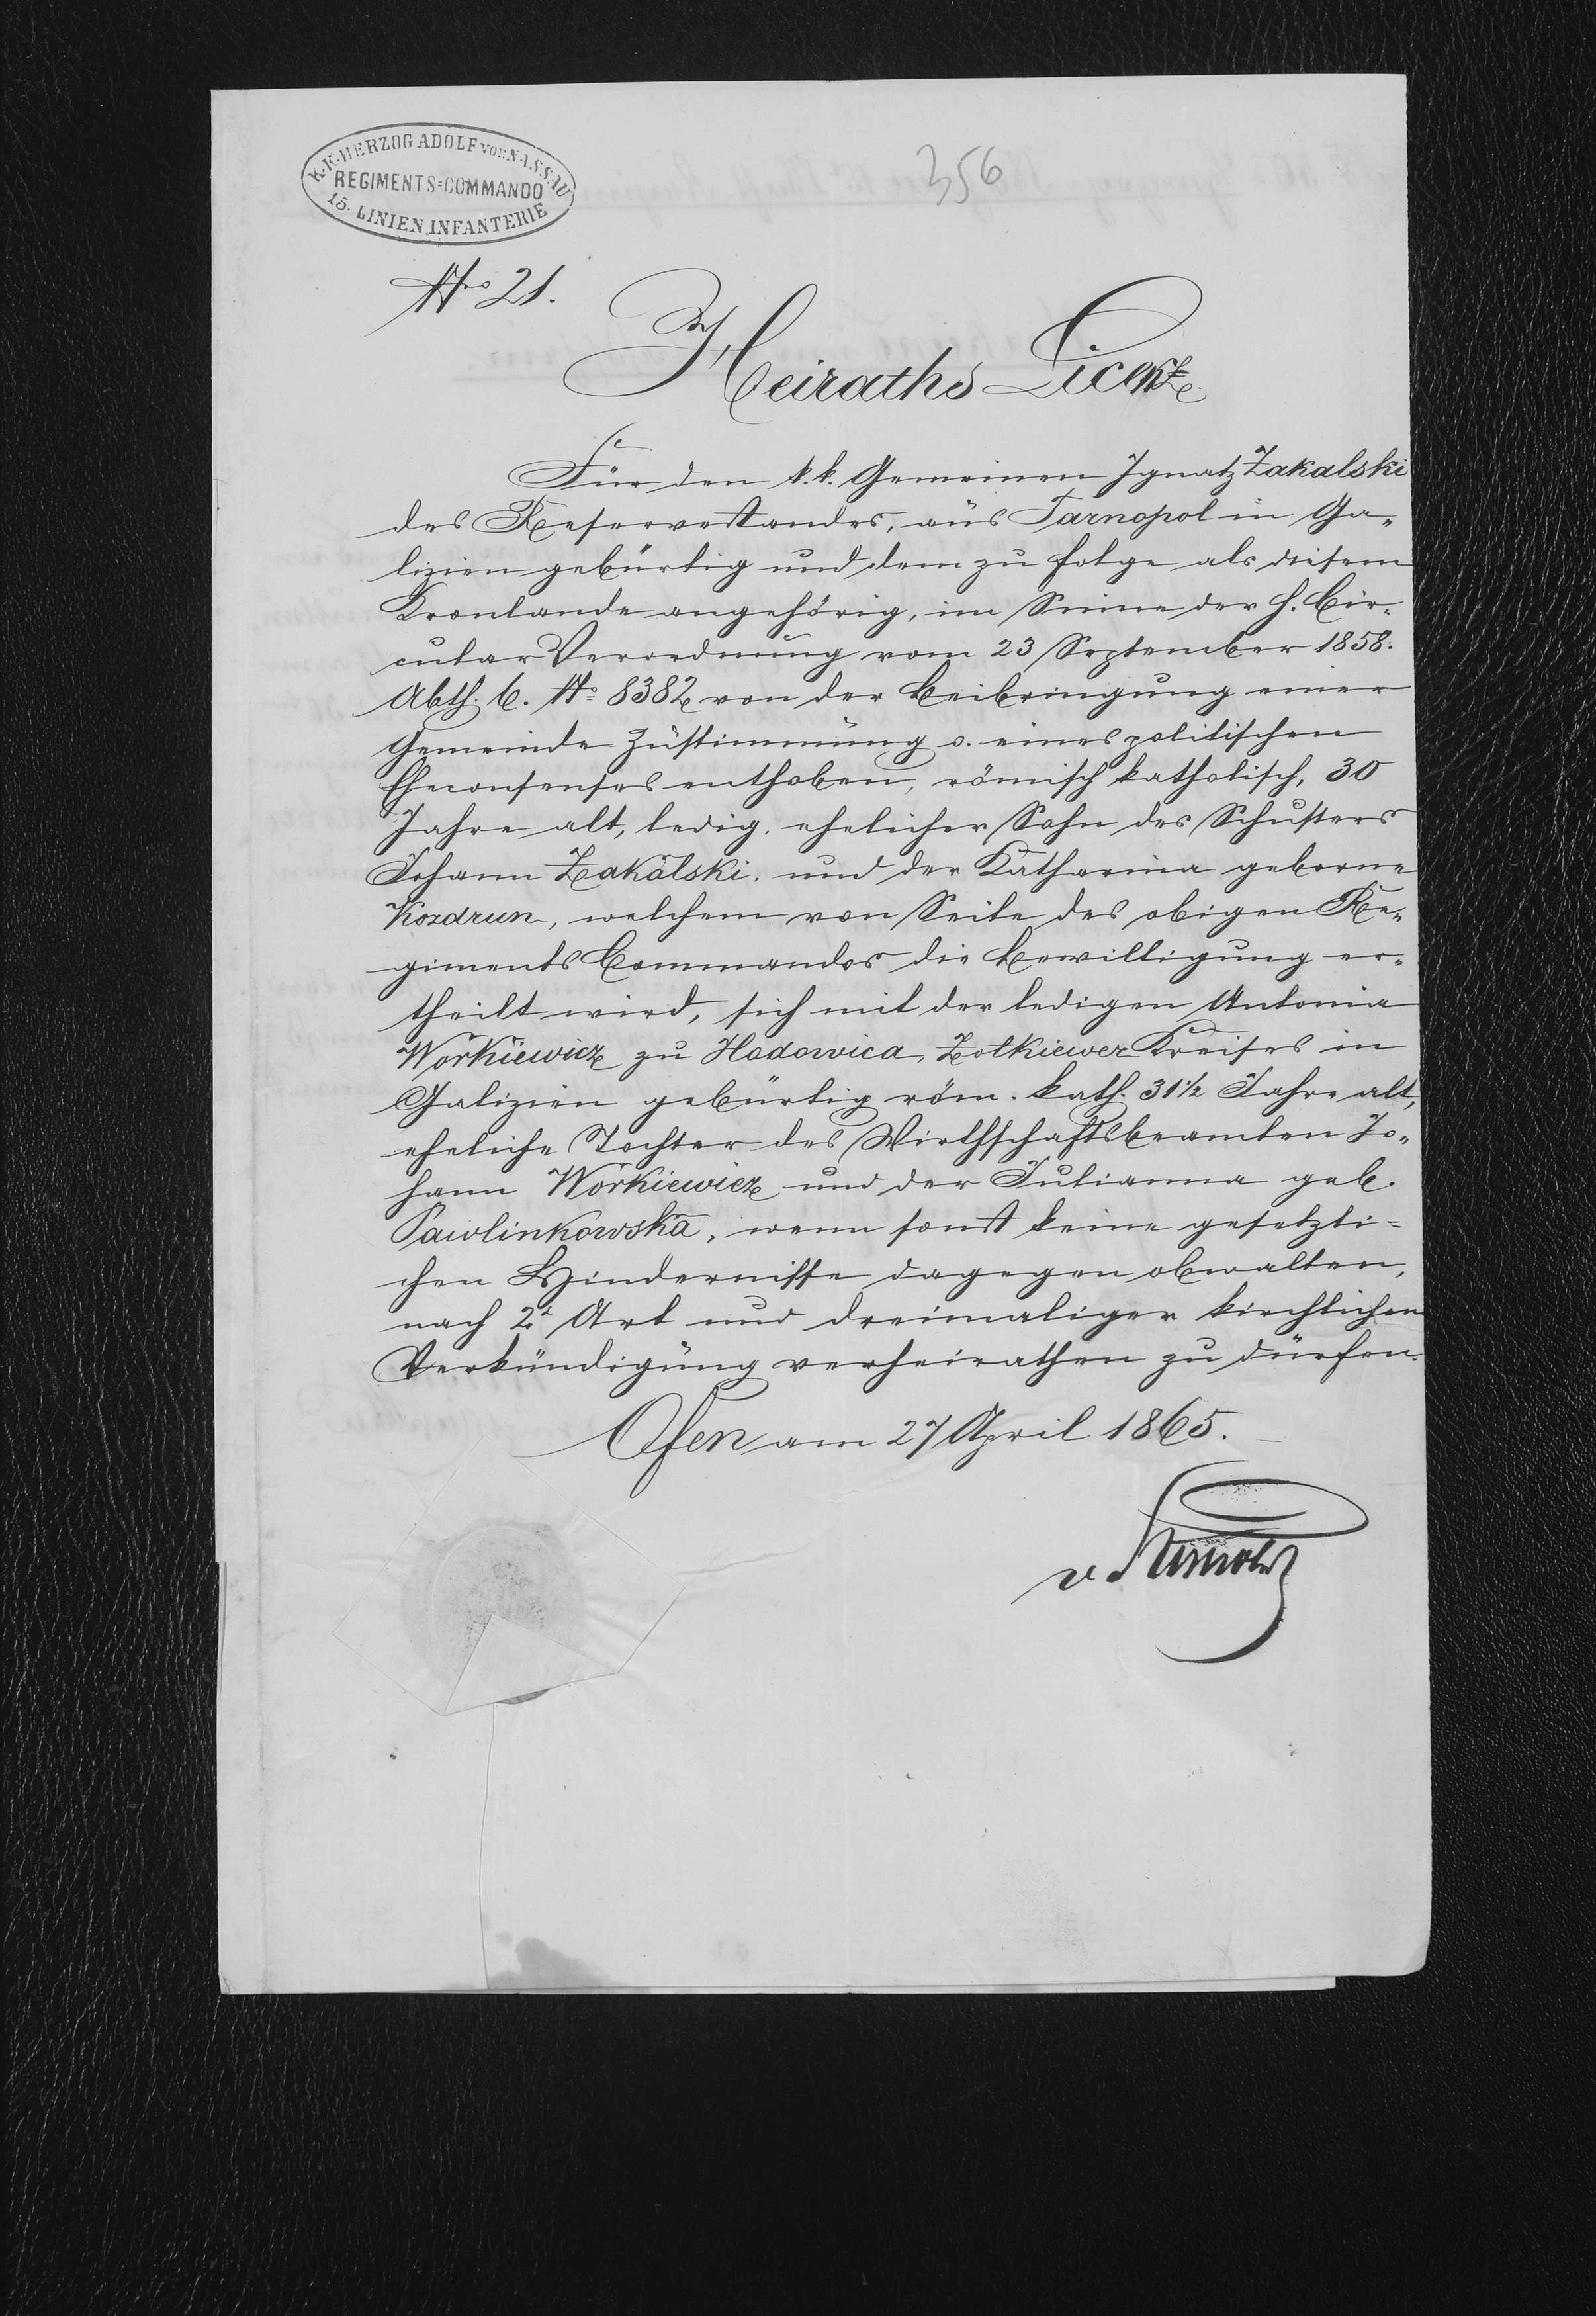 K.K. HERZOG ADOLF von NASSAU
REGIMENTS=COMMANDO
15. LINIEN INFANTERIE
356
No 21.
Heiraths Licenz
Für den k. k. Gemeinen Ignatz Zakalski
des Reservestandes, aus Tarnopol in Ga„
lizien gebürtig und dem zu folge als diesem
Kronlande angehörig, im Sinne der h. Cir„
cular Verordnung vom 23 September 1858.
Abth. 6. No 8382 von der Beibringung einer
Gemeinde Zustimmung o. eines politischen
Eheconsenses enthoben, römisch katholisch, 30
Jahre alt, ledig, ehelicher Sohn des Schusters
Johann Zakalski, und der Katharina geborne
Kozdrun, welchem von Seite des obigen Re„
giments Commandos die Bewilligung er„
theilt wird, sich mit der ledigen Antonia
Workiewicz zu Hodowica, Zolkiewer Kreises in
Galizien gebürtig röm. kath. 31½ Jahre alt,
eheliche Tochter des Wirthschaftsbeamten Jo„
hann Workiewicz und der Julianna geb.
Pawlinkowska, wenn sonst keine gesetzli=
chen Hindernisse dagegen obwalten,
nach 2r Art und dreimaliger kirchlichen
Verkündigung verheirathen zu dürfen.
Ofen am 27 April 1865.